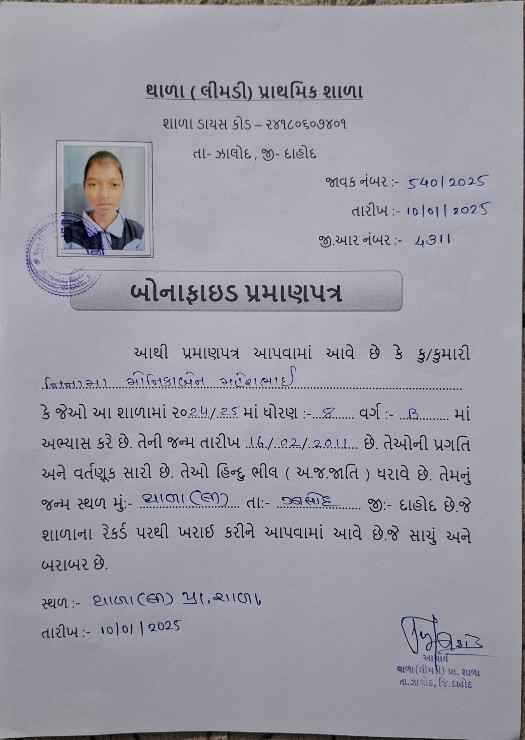 થાળા ( લીમડી) પ્રાથમિક શાળા
શાળા ડાયસ કોડ – ૨૪૧૮૦૬૦૭૪૦૧
તા- ઝાલોદ , જી- દાહોદ
જાવક નંબર :- 540/2025
તારીખ :- 10/01/2025
જી.આર નંબર :- 4311
બોનાફાઇડ પ્રમાણપત્ર
આથી પ્રમાણપત્ર આપવામાં આવે છે કે કુ/કુમારી
નિનામા મોનિકાબેન
કે જેઓ આ શાળામાં ૨૦24/25 માં ધોરણ :- 8 વર્ગ :- B માં
અભ્યાસ કરે છે. તેની જન્મ તારીખ 16/02/2011 છે. તેઓની પ્રગતિ
અને વર્તણૂક સારી છે. તેઓ હિન્દુ ભીલ ( અ.જ.જાતિ ) ધરાવે છે. તેમનું
જન્મ સ્થળ મું:- થાળા(લી) તા:- ઝાલોદ જી:- દાહોદ છે.જે
શાળાના રેકર્ડ પરથી ખરાઈ કરીને આપવામાં આવે છે.જે સાચું અને
બરાબર છે.
સ્થળ :- થાળા(લી) પ્રા. શાળા
તારીખ :- 10/01/2025
આચાર્ય
થાળા(લીમડી) પ્રા. શાળા
તા.ઝાલોદ, જિ.દાહોદ